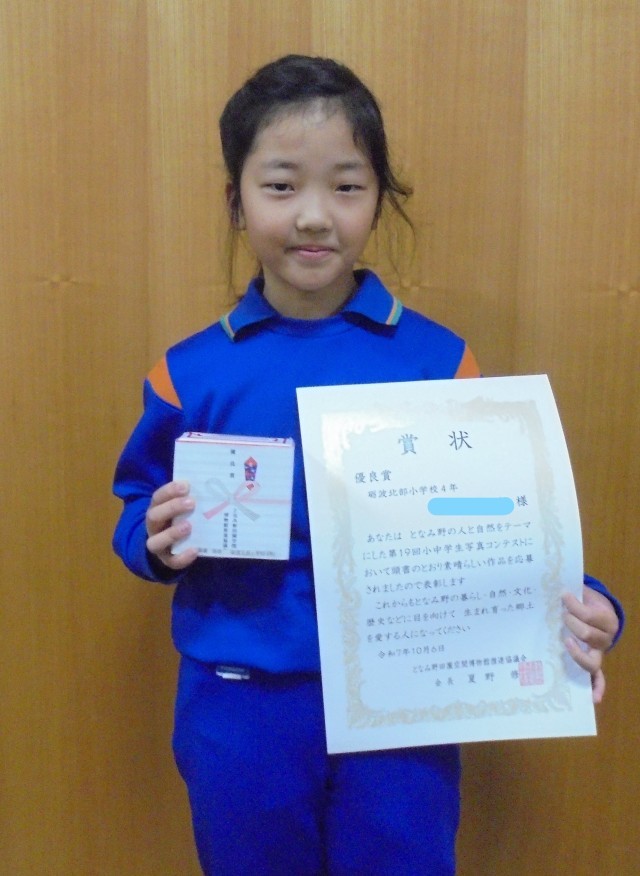 賞状
優良賞
砺波北部小学校4年
様
あなたは となみ野の人と自然をテーマ
にした第19回小中学生写真コンテストに
おいて頭書のとおり素晴らしい作品を応募
されましたので表彰します
これからもとなみ野の暮らし・自然・文化・
歴史などに目を向けて 生まれ育った郷土
を愛する人になってください
令和7年10月6日
となみ野田園空間博物館推進協議会
会長 夏野 修
優良賞